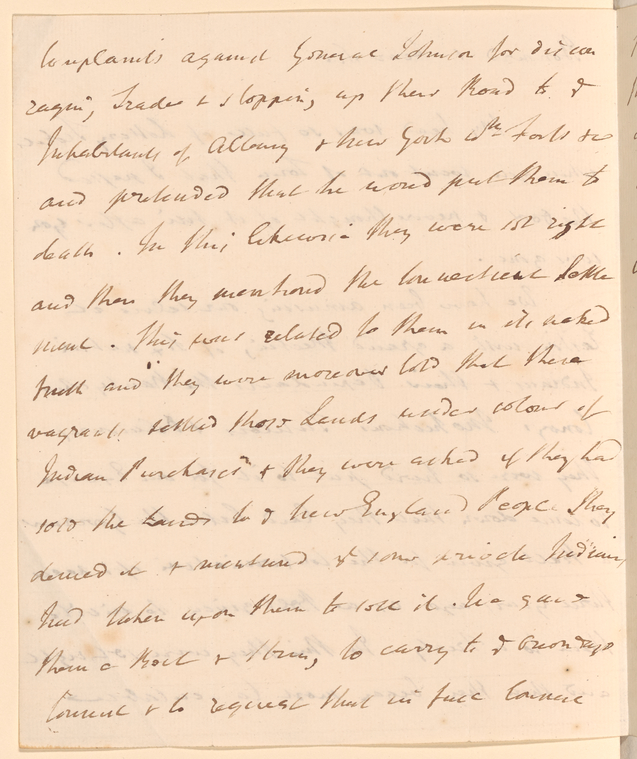 Complaints against General Johnson for discou
raging Trade & stopping up their Road to ye
Inhabitants of Albany & New York wth Forts &c
and pretended that he would put them to
death. In this likewise they were set right
and then they mentioned the Connecticut Settle
ment. This was related to them in its naked
truth and they were moreover told that these
vagrants settled those Lands under colour of
Indian Purchases & they were asked if they had
sold the Lands to ye New England People. They
denied it & mentioned yt some private Indians
had taken upon them to sell it. He gave
them a Belt & String to carry to ye Onondago
Council & to request that in full Council